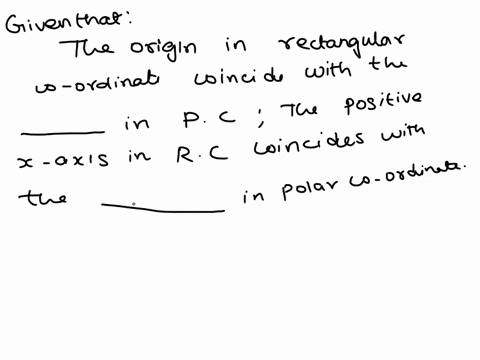 Given that:
The origin in rectangular
co-ordinate coincide with the
______ in P.C ; The positive
x-axis in R.C coincides with
the ______ in polar co-ordinate.